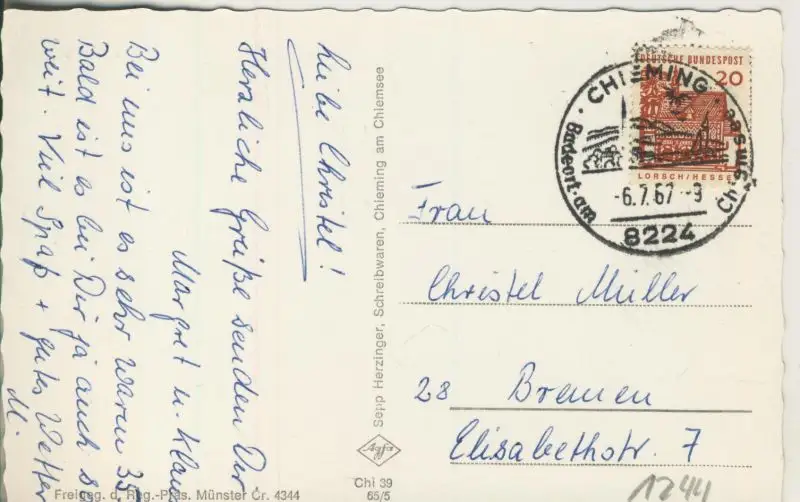 Liebe Christel!
Herzliche Grüße senden Dir
Margret u. Klaus
Bei uns ist es sehr warm 35
Bald ist es bei Dir ja auch so
weit. Viel Spaß + gutes Wetter
M.
Sepp Herzinger, Schreibwaren, Chieming am Chiemsee
DEUTSCHE BUNDESPOST
20
LORSCH/HESSEN
CHIEMING
Badeort am Chiemsee
-6.7.67--9
8224
Frau
Christel Müller
28 Bremen
Elisabethstr. 7
Agfa
Chi 39
65/5
Freigeg. d. Reg.-Präs. Münster Cr. 4344
1244